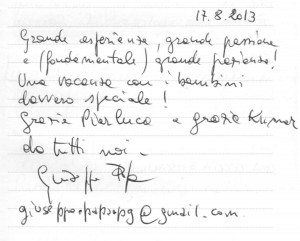 17.8.2013
Grande esperienza, grande passione
e (fondamentale) grande pazienza!
Una vacanza con i bambini
davvero speciale!
Grazie Pierluca e grazie Kumar
da tutti noi -
Giuseppe
@gmail.com